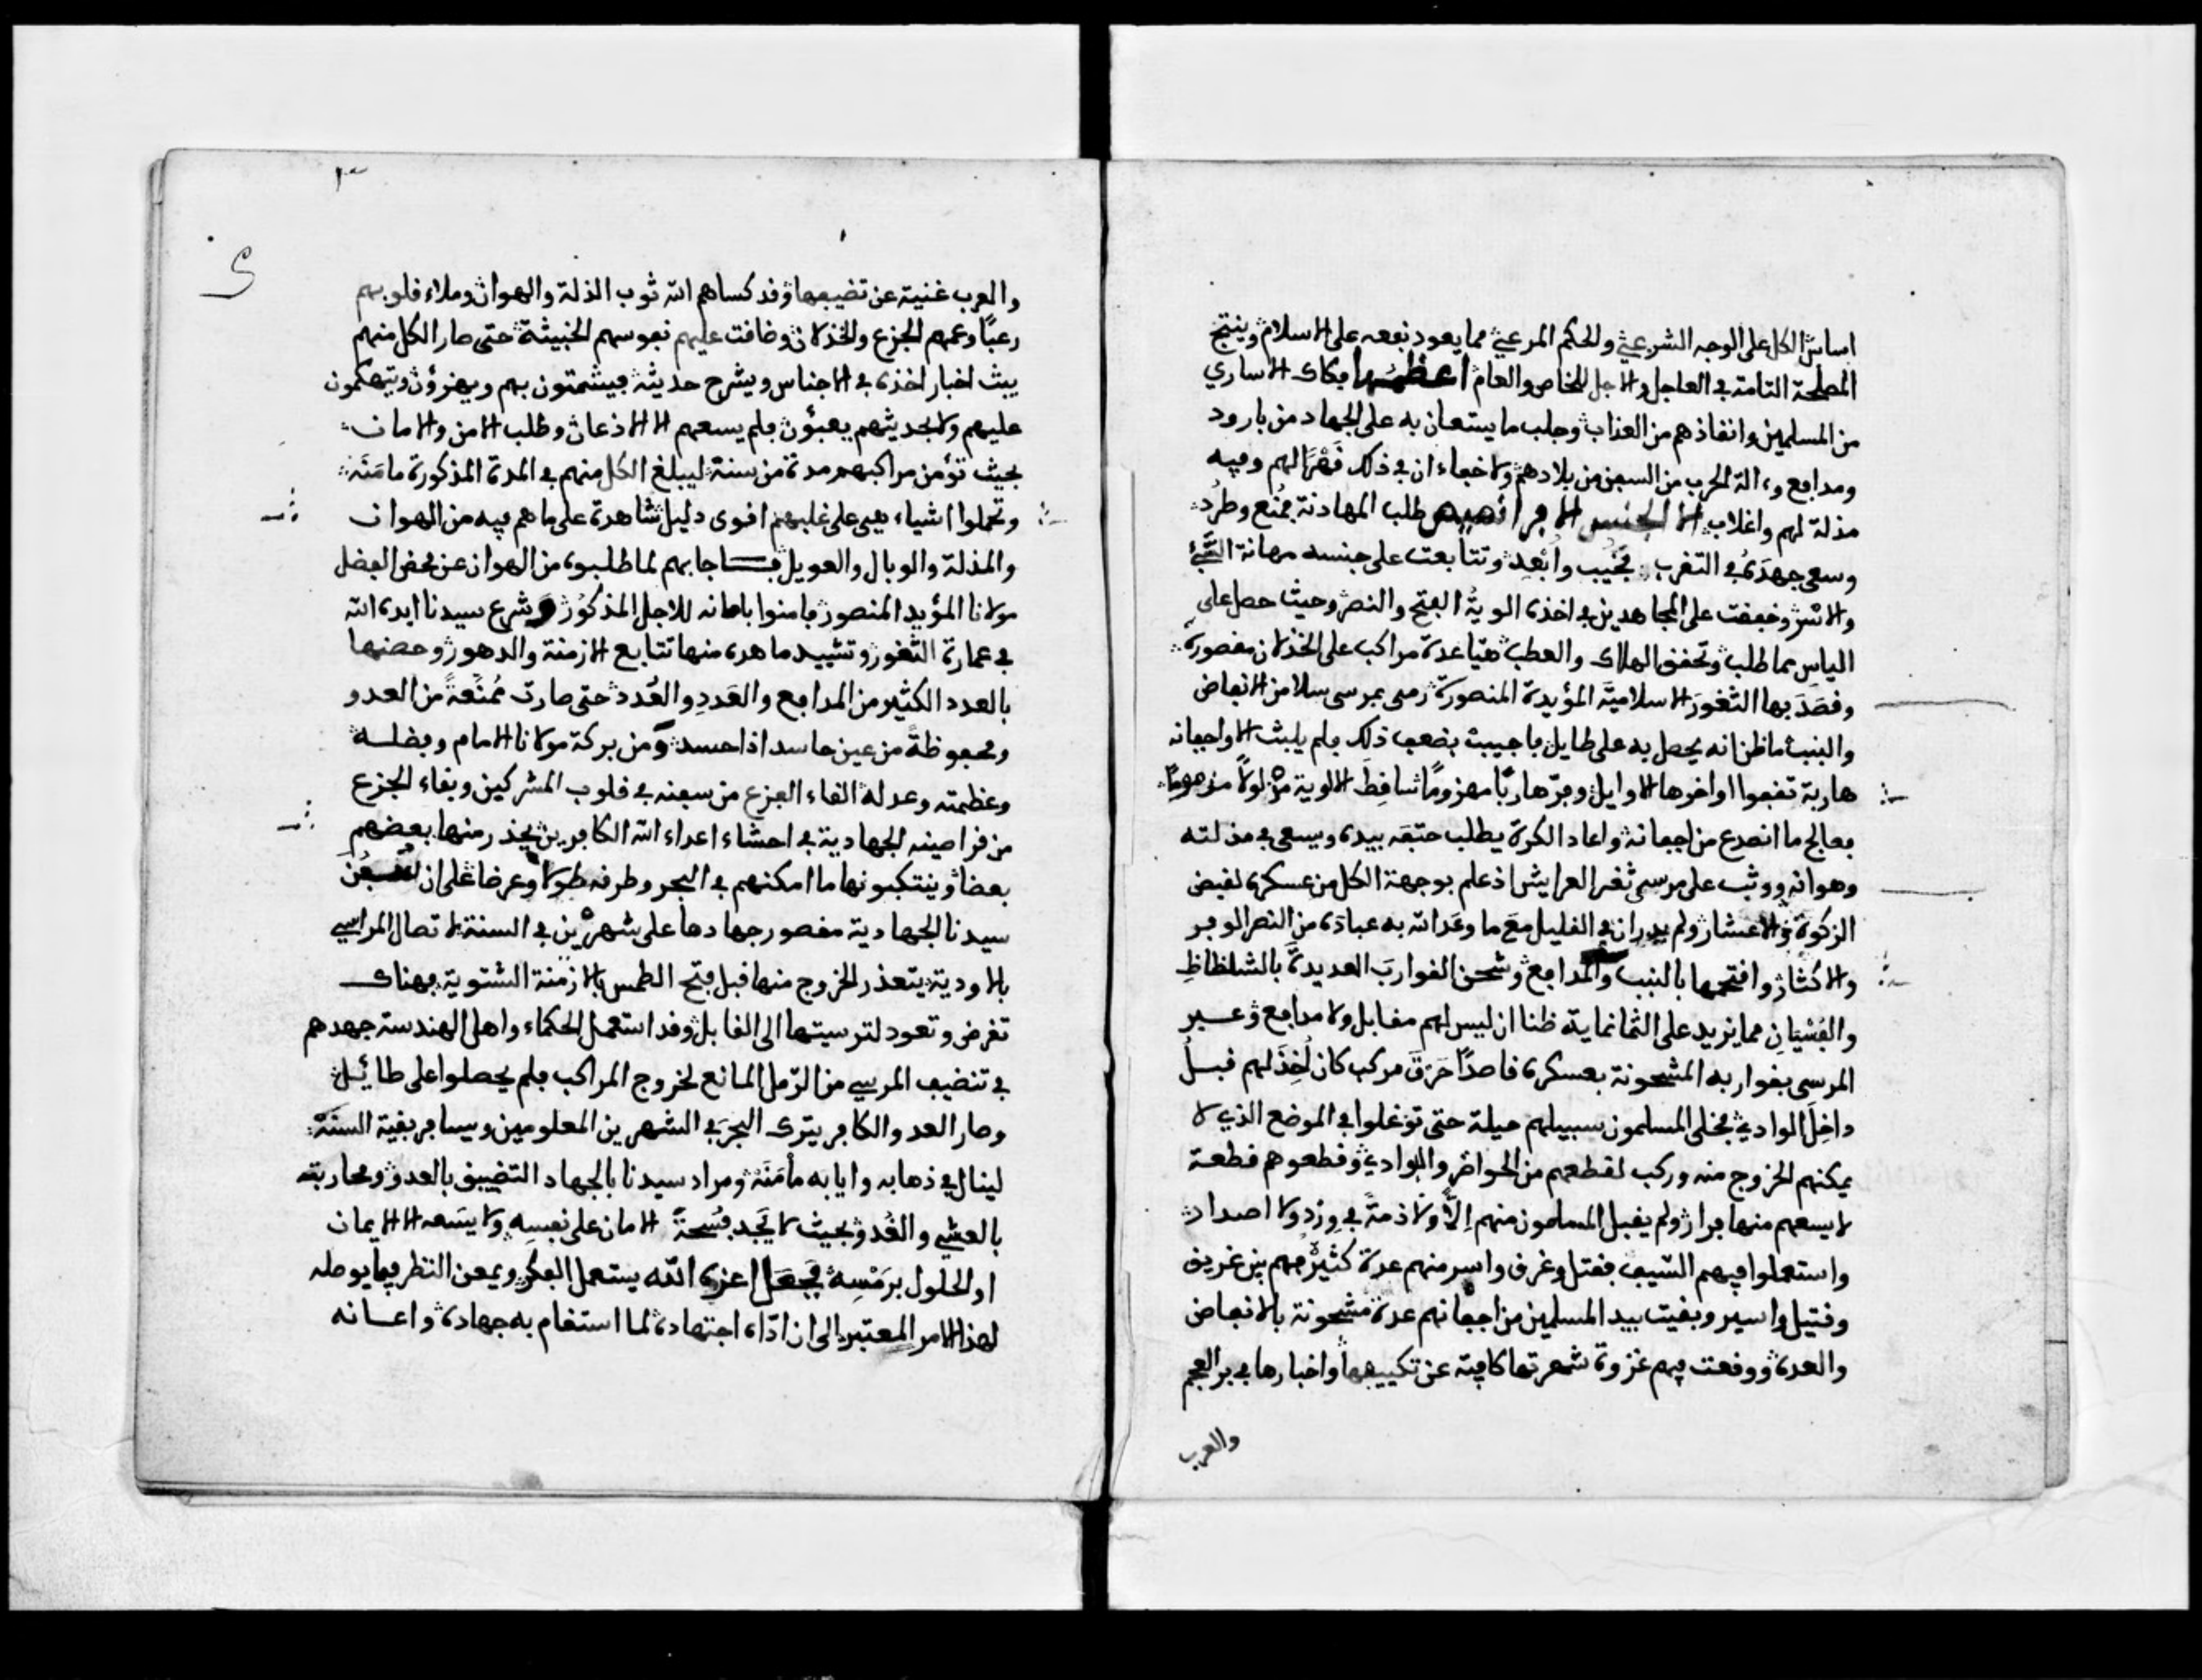 اساس الكل على الوجه الشرعي والحكم المرعي مما يعود نفعه على الاسلام وينتج
المصلحة التامة في العاجل والاجل للخاص والعام اعظمها فكاك الاساري
من المسلمين وانقاذهم من العذاب وجلب ما يستعان به على الجهاد من بارود
ومدافع وءالة الحرب من السفن من بلادهم ولا خفاء ان في ذلك قهرا لهم وفيه
مذلة لهم واغلاب الا الجنس الافرانصيص طلب المهادنة فمنع وطرد
وسعى جهده في التقرب فخيب وابعد وتتابعت على جنسه مهانة
والاسر وخفقت على المجاهدين في اخذه الوية الفتح والنصر وحيث حصل على
الياس مما طلب وتحقق الهلاك والعطب هيا عدة مراكب على الخذلان مقصورة
وقصد بها الثغور الاسلامية المؤيدة المنصورة رمى بمرسى سلا من الانفاض
والبنب ما ظن انه يحصل به على طايل فاجيب بضعف ذلك فلم يلبث الا واجفانه
هاربة تقفوا اواخرها الاوايل وفر هاربا مهزوما ساقط الالوية مذلولا مذموما
فعالج ما انصدع من اجفانه واعاد الكرة يطلب حتفه بيده ويسعى في مذلته
وهوانه ووثب على مرسى ثغر العرايش اذ علم بوجهة الكل من عسكره لقبض
الزكوة والاعشار ولم يدر ان في القليل مع ما وعد الله به عباده من النصر الوفر
والاكثار وافتتحها بالبنب والمدافع وشحن القوارب العديدة بالشلظاظ
والفسيان مما يزيد على الثمانماية ظنا ان ليس لهم مقابل ولا مدافع وعبر
المرسى بقواربه المشحونة بعسكره قاصدا حرق مركب كان اخذ لهم قبل
داخل الوادي فخلى المسلمون سبيلهم حيلة حتى توغلوا في الموضع الذي لا
يمكنهم الخروج منه وركب لقطعهم من الحواضر والبوادي وقطعوهم قطعة
لا يسعهم منها فرار ولم يقبل المسلمون منهم إلا ولا ذمة في ورد ولا اصدار
واستعملوا فيهم السيف فقتل وغرق واسر منهم عدة كثيرة فهم بين غريق
وقتيل واسير وبقيت بيد المسلمين من اجفانهم عدة مشحونة بالانفاض
والعدة ووقعت فيهم غزوة شهرتها كافية عن تكييفها واخبارها في بر العجم
والعرب
والعرب غنية عن تضيفها وقد كساهم الله ثوب الذلة والهوان وملاء قلوبهم
رعبا وعمهم الجزع والخذلان وضاقت عليهم نفوسهم الخبيثة حتى صار الكل منهم
يبث اخبار اخذه في الاجناس ويشرح حديثه فيشمتون بهم ويهزؤن ويتهكمون
عليهم ولا بحديثهم يعبؤن فلم يسعهم الا الاذعان وطلب الامن والامان
بحيث تؤمن مراكبهم مدة من سنة ليبلغ الكل منهم في المدة المذكورة مامنه
وتحملوا اشياء هي على غلبهم اقوى دليل شاهدة على ما هم فيه من الهوان
والمذلة والوبال والعويل فاجابهم لما طلبوه من الهوان عن محض الفضل
مولانا المؤيد المنصور فامنوا بامانه للاجل المذكور وشرع سيدنا ايده الله
في عمارة الثغور وتشييد ما هده منها تتابع الازمنة والدهور وحصنها
بالعدد الكثير من المدافع والعدد والعدد حتى صارت ممنعة من العدو
ومحفوظة من عين حاسد اذا حسد ومن بركة مولانا الامام وفضله
وعظمته وعدله القاء الفزع من سفنه في قلوب المشركين وبقاء الجزع
من قراصينه الجهادية في احشاء اعداء الله الكافرين يحذر منها بعضهم
بعضا وينتكبونها ما امكنهم في البحر وطرقه طولا وعرضا على ان لسفن
سيدنا الجهادية مقصور جهادها على شهرين في السنة لاتصال المراسي
بالاودية يتعذر الخروج منها قبل فتح الطمس بالازمنة الشتوية فهناك
تقرض وتعود لترسيتها الى القابل وقد استعمل الحكماء واهل الهندسة جهدهم
في تنضيف المرسي من الرمل المانع لخروج المراكب فلم يحصلوا على طائل
وصار العدو الكافر يترك البحر في الشهرين المعلومين ويسافر بقية السنة
لينال في ذهابه وايابه مأمنه ومراد سيدنا بالجهاد التضييق بالعدو ومحاربته
بالعشي والغدو بحيث لا يجد فسحة الامان على نفسه ولا يسعه الا الايمان
او الحلول برمسه فجعل اعزه الله يستعمل الفكر ويمعن النظر فيما يوصله
لهذا الامر المعتبر الى ان اداه اجتهاده لما استقام به جهاده واعانه